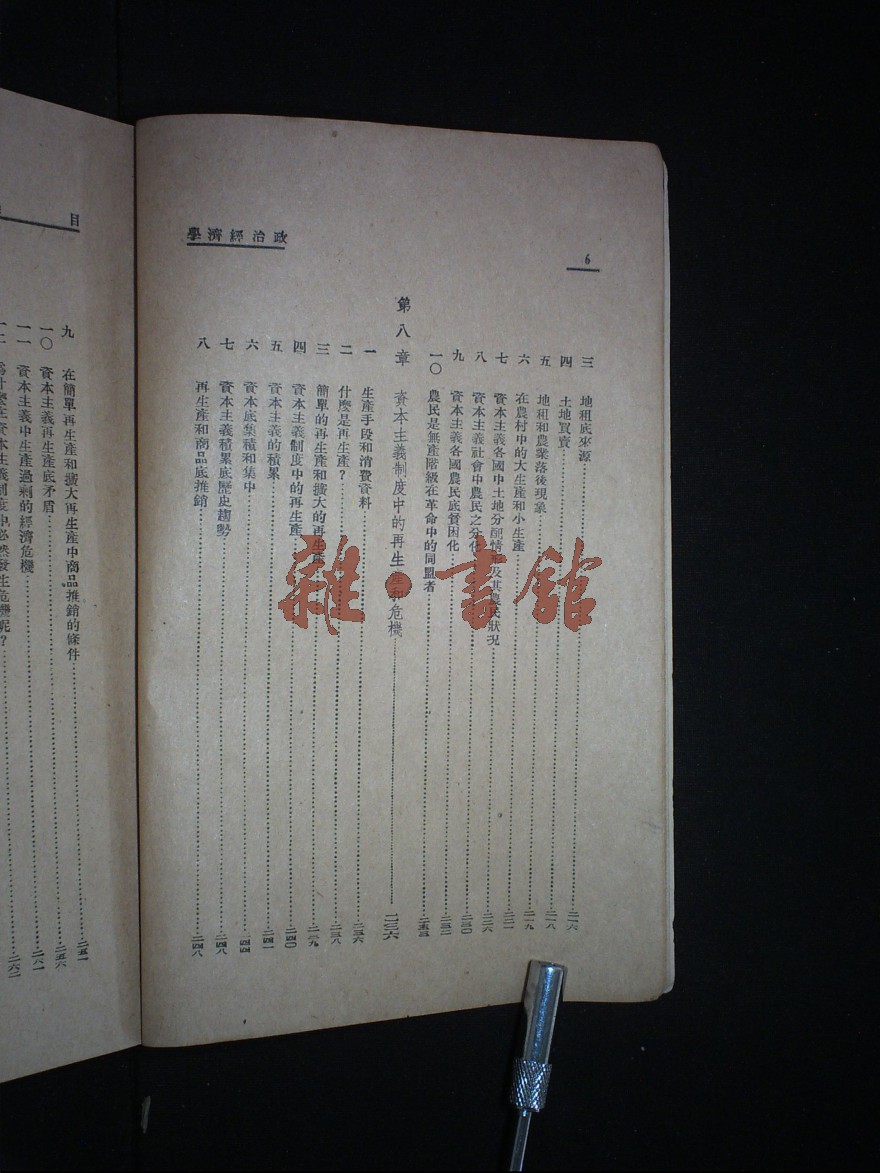 政治經濟學
6
三 地租底來源 二一六
四 土地買賣 二一八
五 地租和農業落後現象 二一九
六 在農村中的大生產和小生產 二二一
七 資本主義各國中土地分劑情形及其農民狀况 二二六
八 資本主義社會中農民之分化 二三〇
九 資本主義各國農民底貧困化 二三二
一〇 農民是無產階級在革命中的同盟者
第八章 資本主義制度中的再生產和危機 二三六
一 生產手段和消費資料 二三六
二 什麼是再生產？ 二三八
三 簡單的再生產和擴大的再生產 二三九
四 資本主義制度中的再生產 二四〇
五 資本主義的積累 二四一
六 資本底集積和集中 二四四
七 資本主義積累底歷史趨勢 二四八
八 再生產和商品底推銷 二四八
目
九 在簡單再生產和擴大再生產中商品推銷的條件 二五一
一〇 資本主義再生產底矛盾 二五六
一一 資本主義中生產過剩的經濟危機 二六一
為什麼在資本主義制度中必然發生危機呢？ 二六二
雜·書館